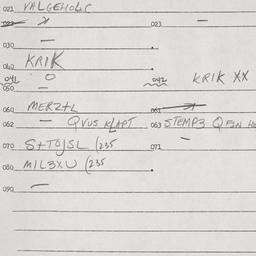 021 VALGEHOLC
022 023 —
030 —
040 KRIK
041 O 042 KRIK XX
050 —
060 MERZTL 061
062 — QVUS KLAPT 063 STEMP3 Q
070 S+TOJSL (235 071 —
080 MIL3XU (235
090 —